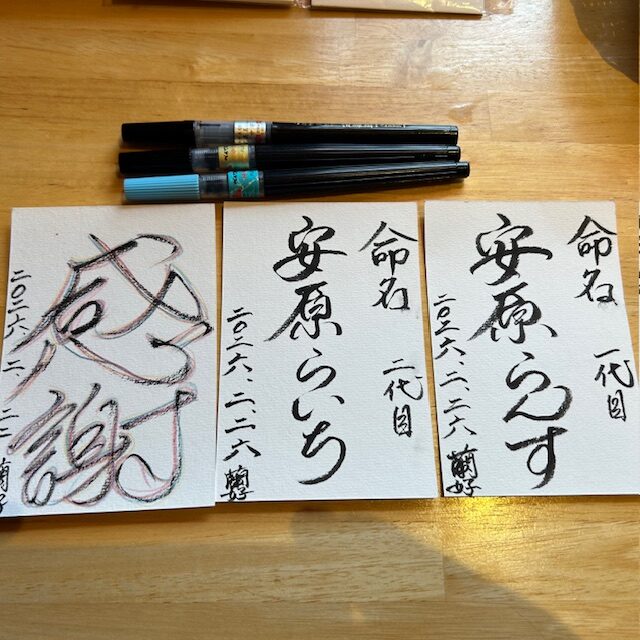 命名 一代目
安原らんす
二〇二六、二、二六
命名 二代目
安原らいち
二〇二六、二、二六
感謝
二〇二六、二、二二